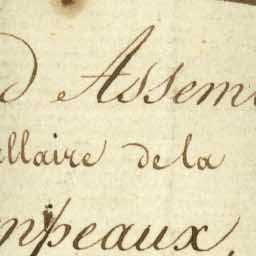 d Assem
ellaire de la
mpeaux,